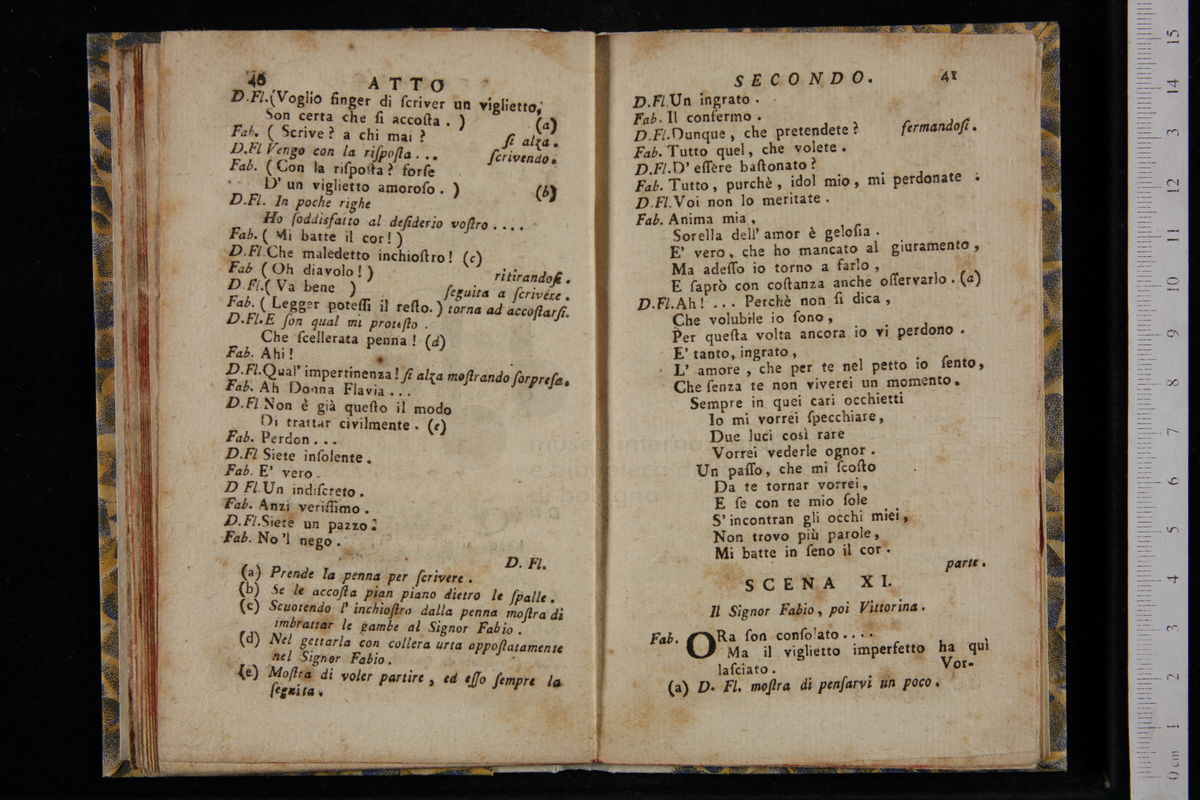 40 ATTO
D.Fl.(Voglio finger di ſcriver un viglietto,
Son certa che ſi accoſta. ) (a)
Fab. ( Scrive? a chi mai ? ſi alza.
D.Fl Vengo con la riſpoſta... ſcrivendo.
Fab. (Con la riſpoſta? forſe
D' un viglietto amoroſo. ) (b)
D.Fl. In poche righe
Ho ſoddisfatto al deſiderio voſtro....
Fab. ( Mi batte il cor! )
D.Fl.Che maledetto inchioſtro! (c)
Fab (Oh diavolo!) ritirandoſi.
D.Fl.( Va bene ) ſeguita a ſcrivere.
Fab. ( Legger poteſſi il reſto. ) torna ad accoſtarſi.
D.Fl.E ſon qual mi proteſto .
Che ſcellerata penna! (d)
Fab. Ahi!
D.Fl.Qual' impertinenza! ſi alza moſtrando ſorpreſa.
Fab. Ah Donna Flavia...
D.Fl Non è già queſto il modo
Di trattar civilmente. (e)
Fab. Perdon...
D.Fl Siete inſolente.
Fab. E' vero.
D Fl.Un indiſcreto.
Fab. Anzi veriſſimo.
D.Fl.Siete un pazzo.
Fab. No 'l nego.
D. Fl.
(a) Prende la penna per ſcrivere.
(b) Se le accoſta pian piano dietro le ſpalle.
(c) Scuotendo l' inchioſtro dalla penna moſtra di
imbrattar le gambe al Signor Fabio.
(d) Nel gettarla con collera urta oppoſtatamente
nel Signor Fabio.
(e) Moſtra di voler partire, ed eſſo ſempre la
ſeguita.
SECONDO. 41
D.Fl.Un ingrato.
Fab. Il confermo.
D.Fl.Dunque, che pretendete? fermandoſi.
Fab. Tutto quel, che volete.
D.Fl.D' eſſere baſtonato?
Fab. Tutto, purchè, idol mio, mi perdonate.
D.Fl.Voi non lo meritate.
Fab. Anima mia,
Sorella dell' amor è geloſia.
E' vero, che ho mancato al giuramento,
Ma adeſſo io torno a farlo,
E ſaprò con coſtanza anche oſſervarlo. (a)
D.Fl.Ah! ... Perchè non ſi dica,
Che volubile io ſono,
Per queſta volta ancora io vi perdono.
E' tanto, ingrato,
L' amore, che per te nel petto io ſento,
Che ſenza te non viverei un momento.
Sempre in quei cari occhietti
Io mi vorrei ſpecchiare,
Due luci così rare
Vorrei vederle ognor.
Un paſſo, che mi ſcoſto
Da te tornar vorrei,
E ſe con te mio ſole
S' incontran gli occhi miei,
Non trovo più parole,
Mi batte in ſeno il cor.
parte.
SCENA XI.
Il Signor Fabio, poi Vittorina.
Fab. ORa ſon conſolato....
Ma il viglietto imperfetto ha quì
laſciato. Vor-
(a) D. Fl. moſtra di penſarvi un poco.
0 cm 1 2 3 4 5 6 7 8 9 10 11 12 13 14 15